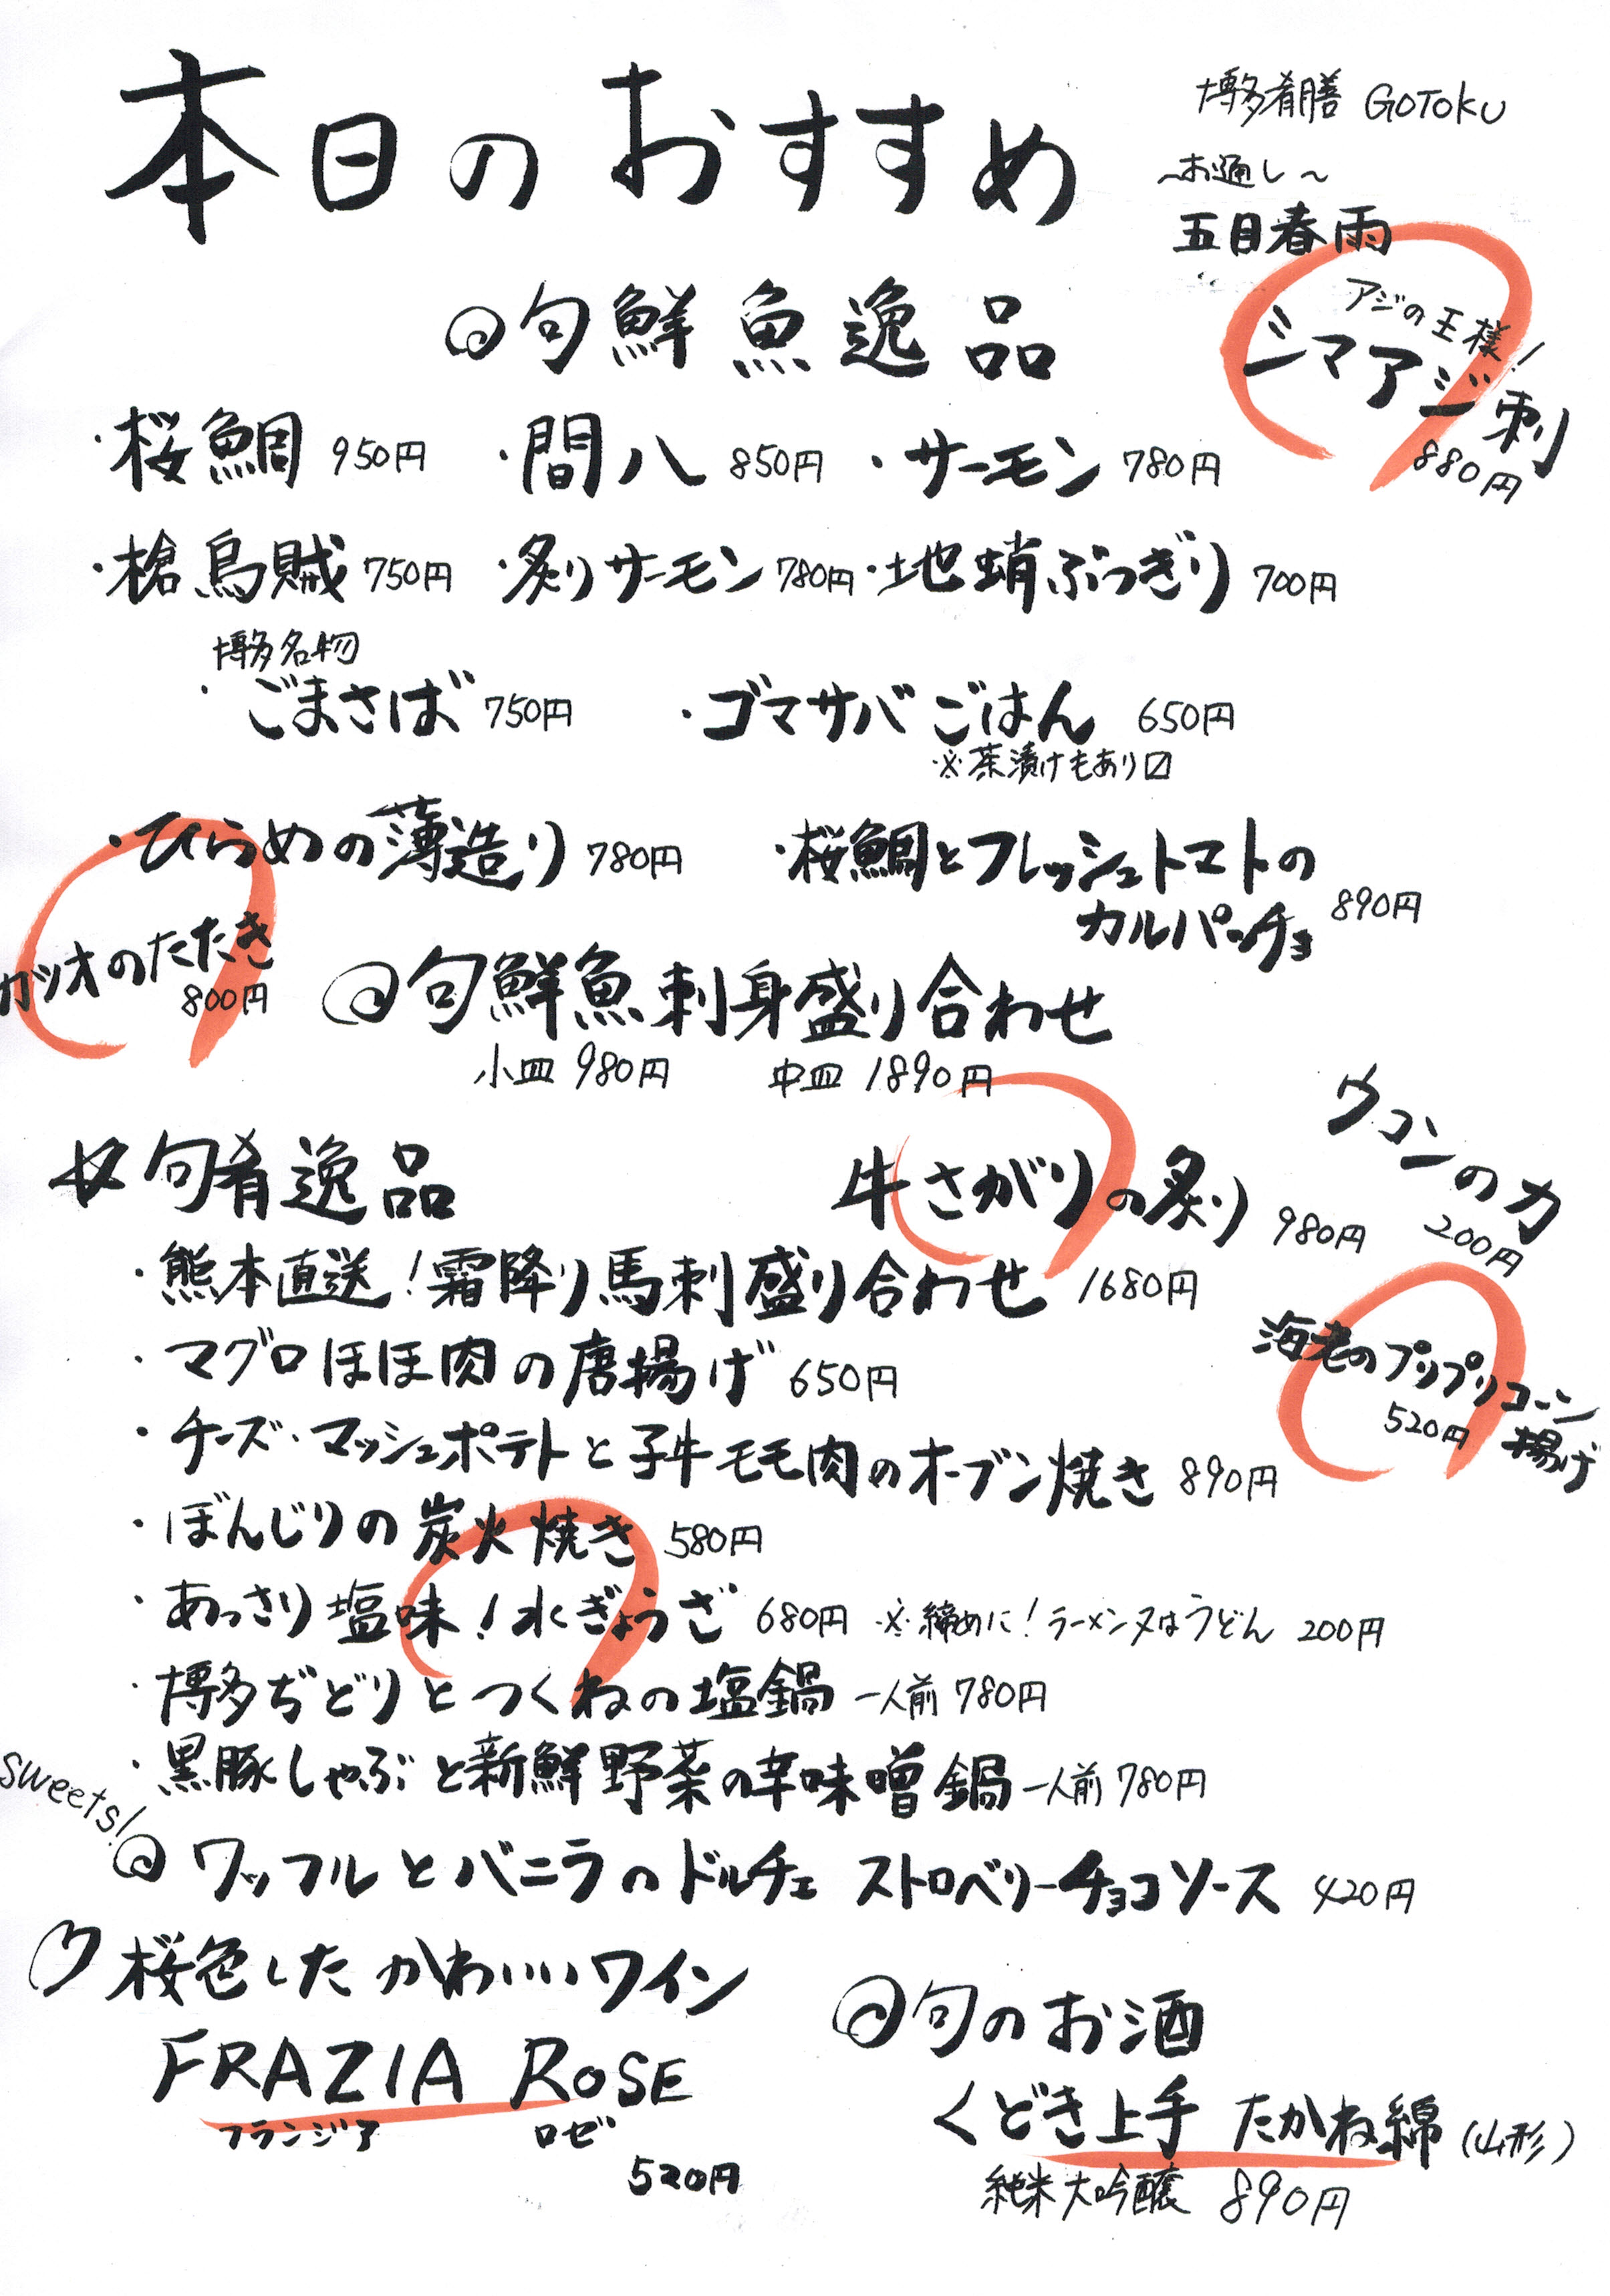 本日のおすすめ
博多肴膳 GOTOKU
~お通し~
五目春雨
旬鮮魚逸品
アジの王様!
シマアジ刺
880円
・桜鯛 950円 ・間八 850円 ・サーモン 780円
・槍烏賊 750円 ・炙りサーモン 780円 ・地蛸ぶつぎり 700円
博多名物
・ごまさば 750円 ・ゴマサバごはん 650円
※茶漬けもあり〼
・ひらめの薄造り 780円 ・桜鯛とフレッシュトマトの
カルパッチョ 890円
カツオのたたき
800円
旬鮮魚刺身盛り合わせ
小皿 980円 中皿 1890円
ウコンの力
200円
旬肴逸品
牛さがりの炙り 980円
・熊本直送!霜降り馬刺盛り合わせ 1680円
・マグロほほ肉の唐揚げ 650円
海老のプリプリコーン
揚げ
520円
・チーズ・マッシュポテトと子牛モモ肉のオーブン焼き 890円
・ぼんじりの炭火焼き 580円
・あっさり塩味!水ぎょうざ 680円 ※締めに!ラーメン又はうどん 200円
・博多ぢどりとつくねの塩鍋 一人前 780円
・黒豚しゃぶと新鮮野菜の辛味噌鍋 一人前 780円
sweets!
ワッフルとバニラのドルチェ ストロベリーチョコソース 420円
桜色したかわいいワイン
FRAZIA ROSE
フランジア ロゼ
520円
旬のお酒
くどき上手 たかね錦 (山形)
純米大吟醸 890円